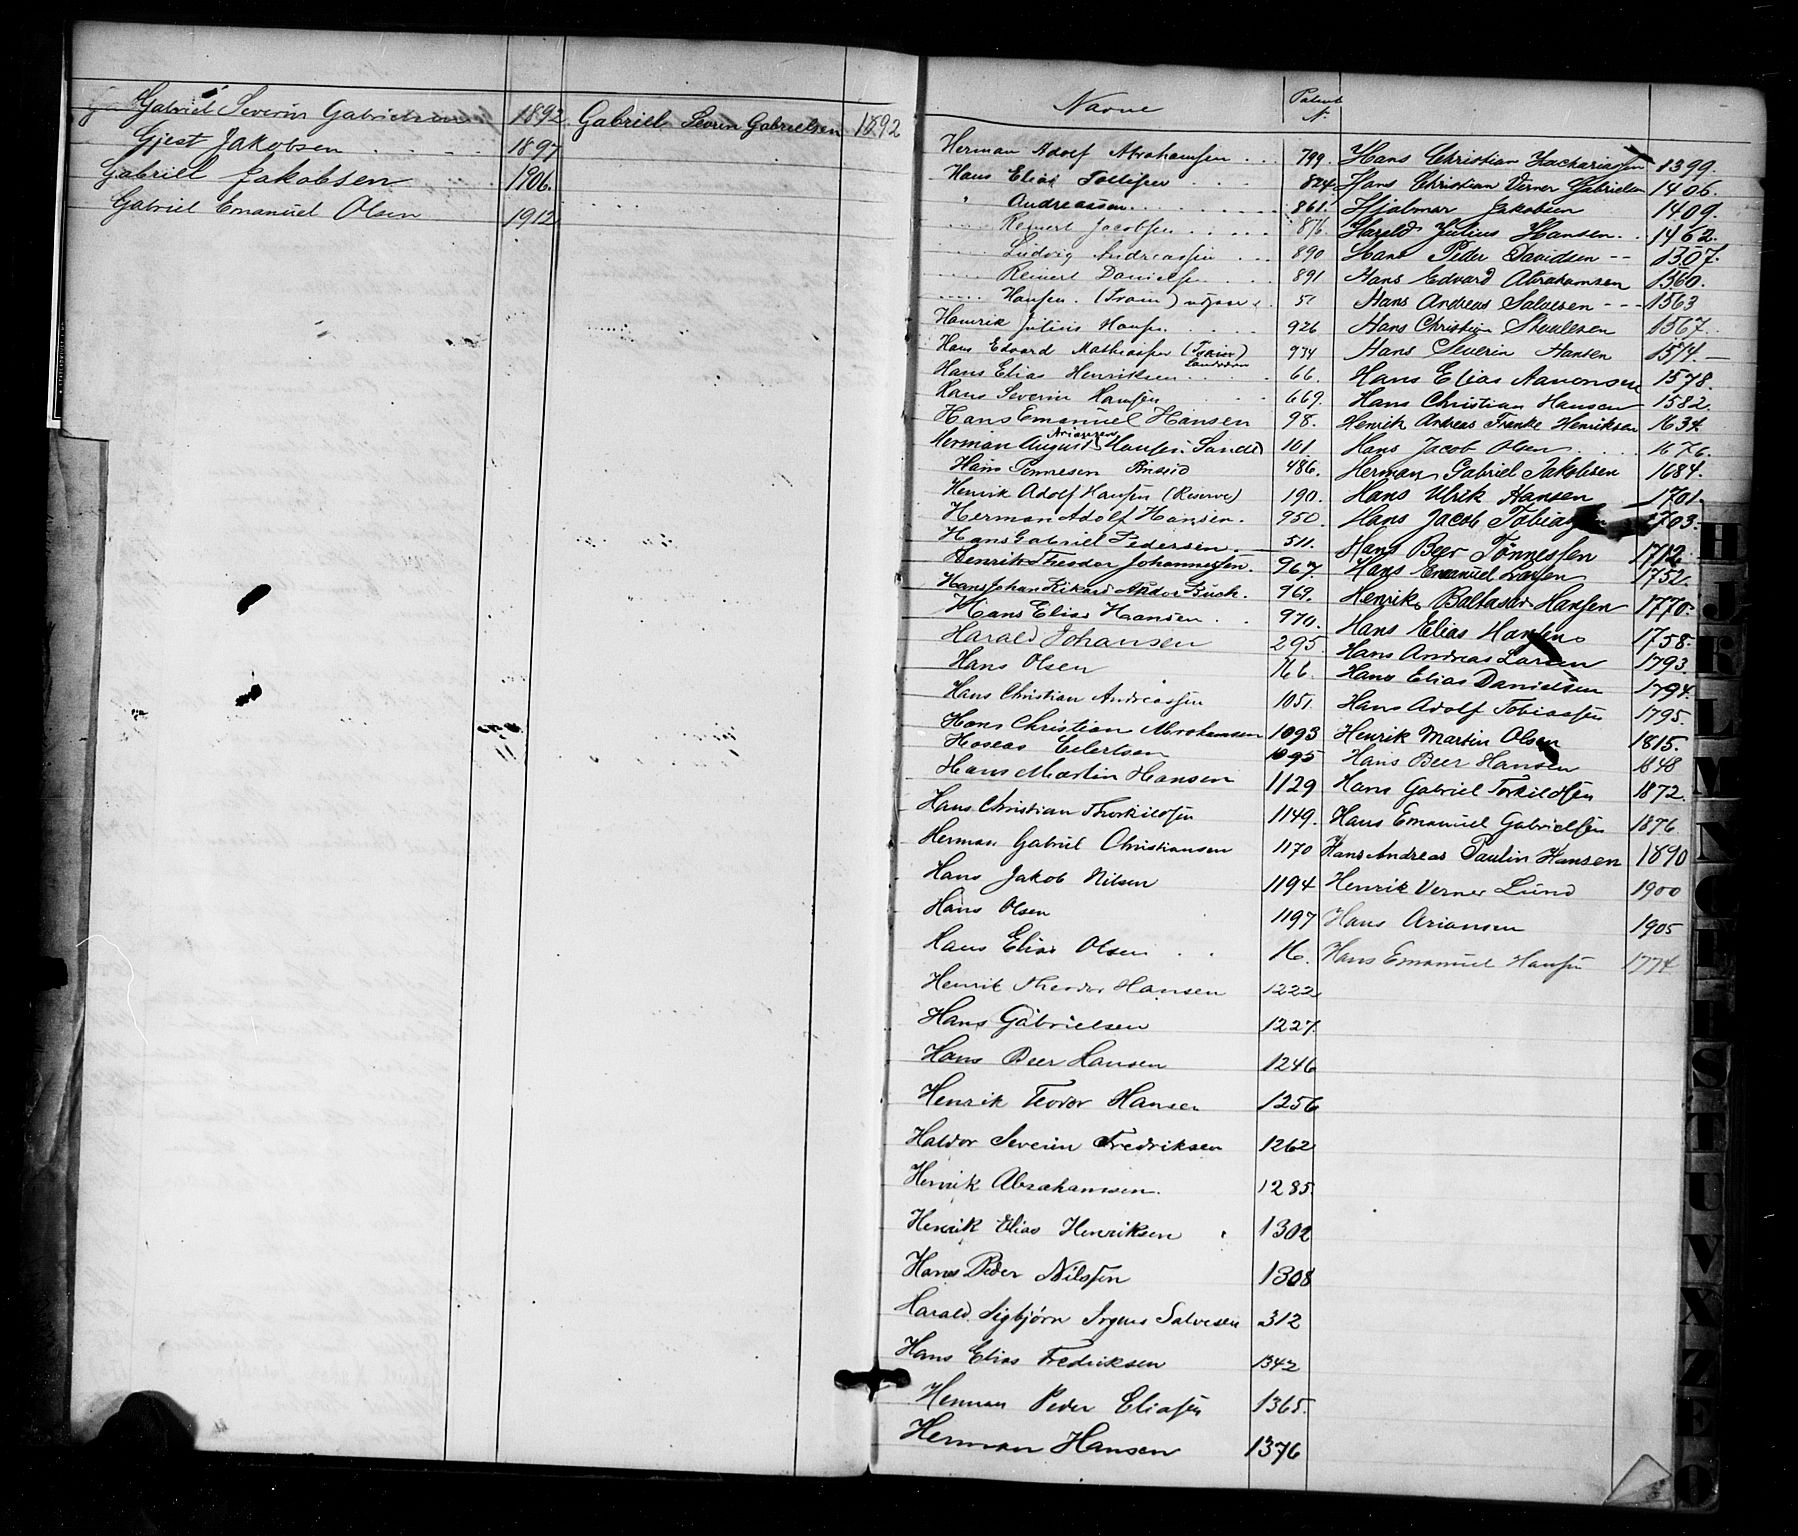 Gabriel Severin Gabrielsen 1892
Gjest Jakobsen 1897
Gabriell Jakobsen 1906.
Gabriel Emanuel Olsen 1912
Gabriell Sevrin Gabrielsen 1892
Navne Patent N.
Herman Adolf Abrahamsen 799.
Hans Elias Tollisen 824.
" Andreassen 861.
Reinert Jacobsen 876
Ludvig Andreassen 890
Reinert Danielsen 891
Hansen. (Train) 51
Henrik Julius Hansen 926
Hans Edvard Mathiassen (Train) 934
Hans Elias Henriksen 66.
Hans Severin Hansen 669.
Hans Emanuel Hansen 98.
Ariansen
Herman August Hansen. Sande 101.
Hans Tønnesen 486.
Henrik Adolf Hansen (Reserve) 190.
Herman Adolf Hansen. 950.
Hans Gabriell Pedersen 511.
Henrik Theodor Johannessen. 967.
Hans Johan Rikard Andor Buch. 969.
Hans Elias Haansen 970.
Harald Johansen 295.
Hans Olsen 166.
Hans Christian Andreassen 1051.
Hans Christian Abrahamsen 1093
Hoseas Eilertsen 1095
Hans Martin Hansen 1129
Hans Christian Thorkildsen 1149.
Herman Gabriel Christiansen 1170
Hans Jakob Nilsen 1194
Hans Olsen 1197
Hans Elias Olsen 16.
Henrik Theodor Hansen 1222
Hans Gabrielsen 1227.
Hans Beer Hansen 1246
Henrik Teodor Hansen 1256
Haldor Severin Fredriksen 1262
Henrik Abrahamsen. 1285.
Henrik Elias Henriksen 1302
Hans Peder Nilssen 1308
Harald Sigbjørn Salvesen 312
Hans Elias Fredriksen 1342
Herman Peder Eliassen 1365.
Herman Hansen 1376
Hans Christian Zachariassen 1399.
Hans Christian Verner Gabrielsen 1406.
Hjalmar Jakobsen 1409.
Harald Julius Hansen 1462.
Hans Peder Davidsen 1507.
Hans Edvard Abrahamsen 1560.
Hans Andreas Salvesen 1563
Hans Christian 1567.
Hans Severin Hansen 1574.
Hans Elias Aanonsen 1578.
Hans Christian Hansen 1582.
Henrik Andreas Franke Henriksen 1634.
Hans Jacob Olsen 1676.
Herman Gabriel Jakobsen 1684.
Hans Ulrik Hansen 1701.
Hans Jacob Tobiassen 1703.
Hans Beer Tønnessen 1712
Hans Emanuel Larsen 1752.
Henrik Baltasar Hansen 1770.
Hans Elias Hansen 1758.
Hans Andreas Larsen 1793
Hans Elias Danielsen 1794.
Hans Adolf Tobiassen 1795.
Henrik Martin Olsen 1815.
Hans Beer Hansen 1848
Hans Gabriel Torkildsen 1872.
Hans Emanuel Gabrielsen 1876
Hans Andreas Paulin Hansen 1890
Henrik Verner Lund 1900
Hans Ariansen 1905
Hans Emanuel Hansen 1774.
H
J
R
L
M
N
S
T
U
V
X
Z
Ø